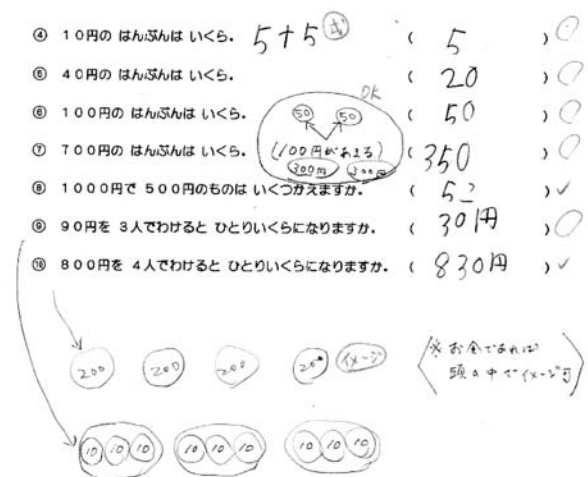 ④ 10円の はんぶんは いくら. 5+5 式 ( 5 )
⑤ 40円の はんぶんは いくら. ( 20 )
⑥ 100円の はんぶんは いくら. ( 50 )
OK
50 50
⑦ 700円の はんぶんは いくら. ( 350 )
(100円があまる)
300円 300円
⑧ 1000円で 500円のものは いくつかえますか. ( 52 )
⑨ 90円を 3人でわけると ひとりいくらになりますか. ( 301円 )
⑩ 800円を 4人でわけると ひとりいくらになりますか. ( 830円 )
200 200 200 200 イメージ
※お金であれば
頭の中でイメージ可
10 10 10 10 10 10 10 10 10